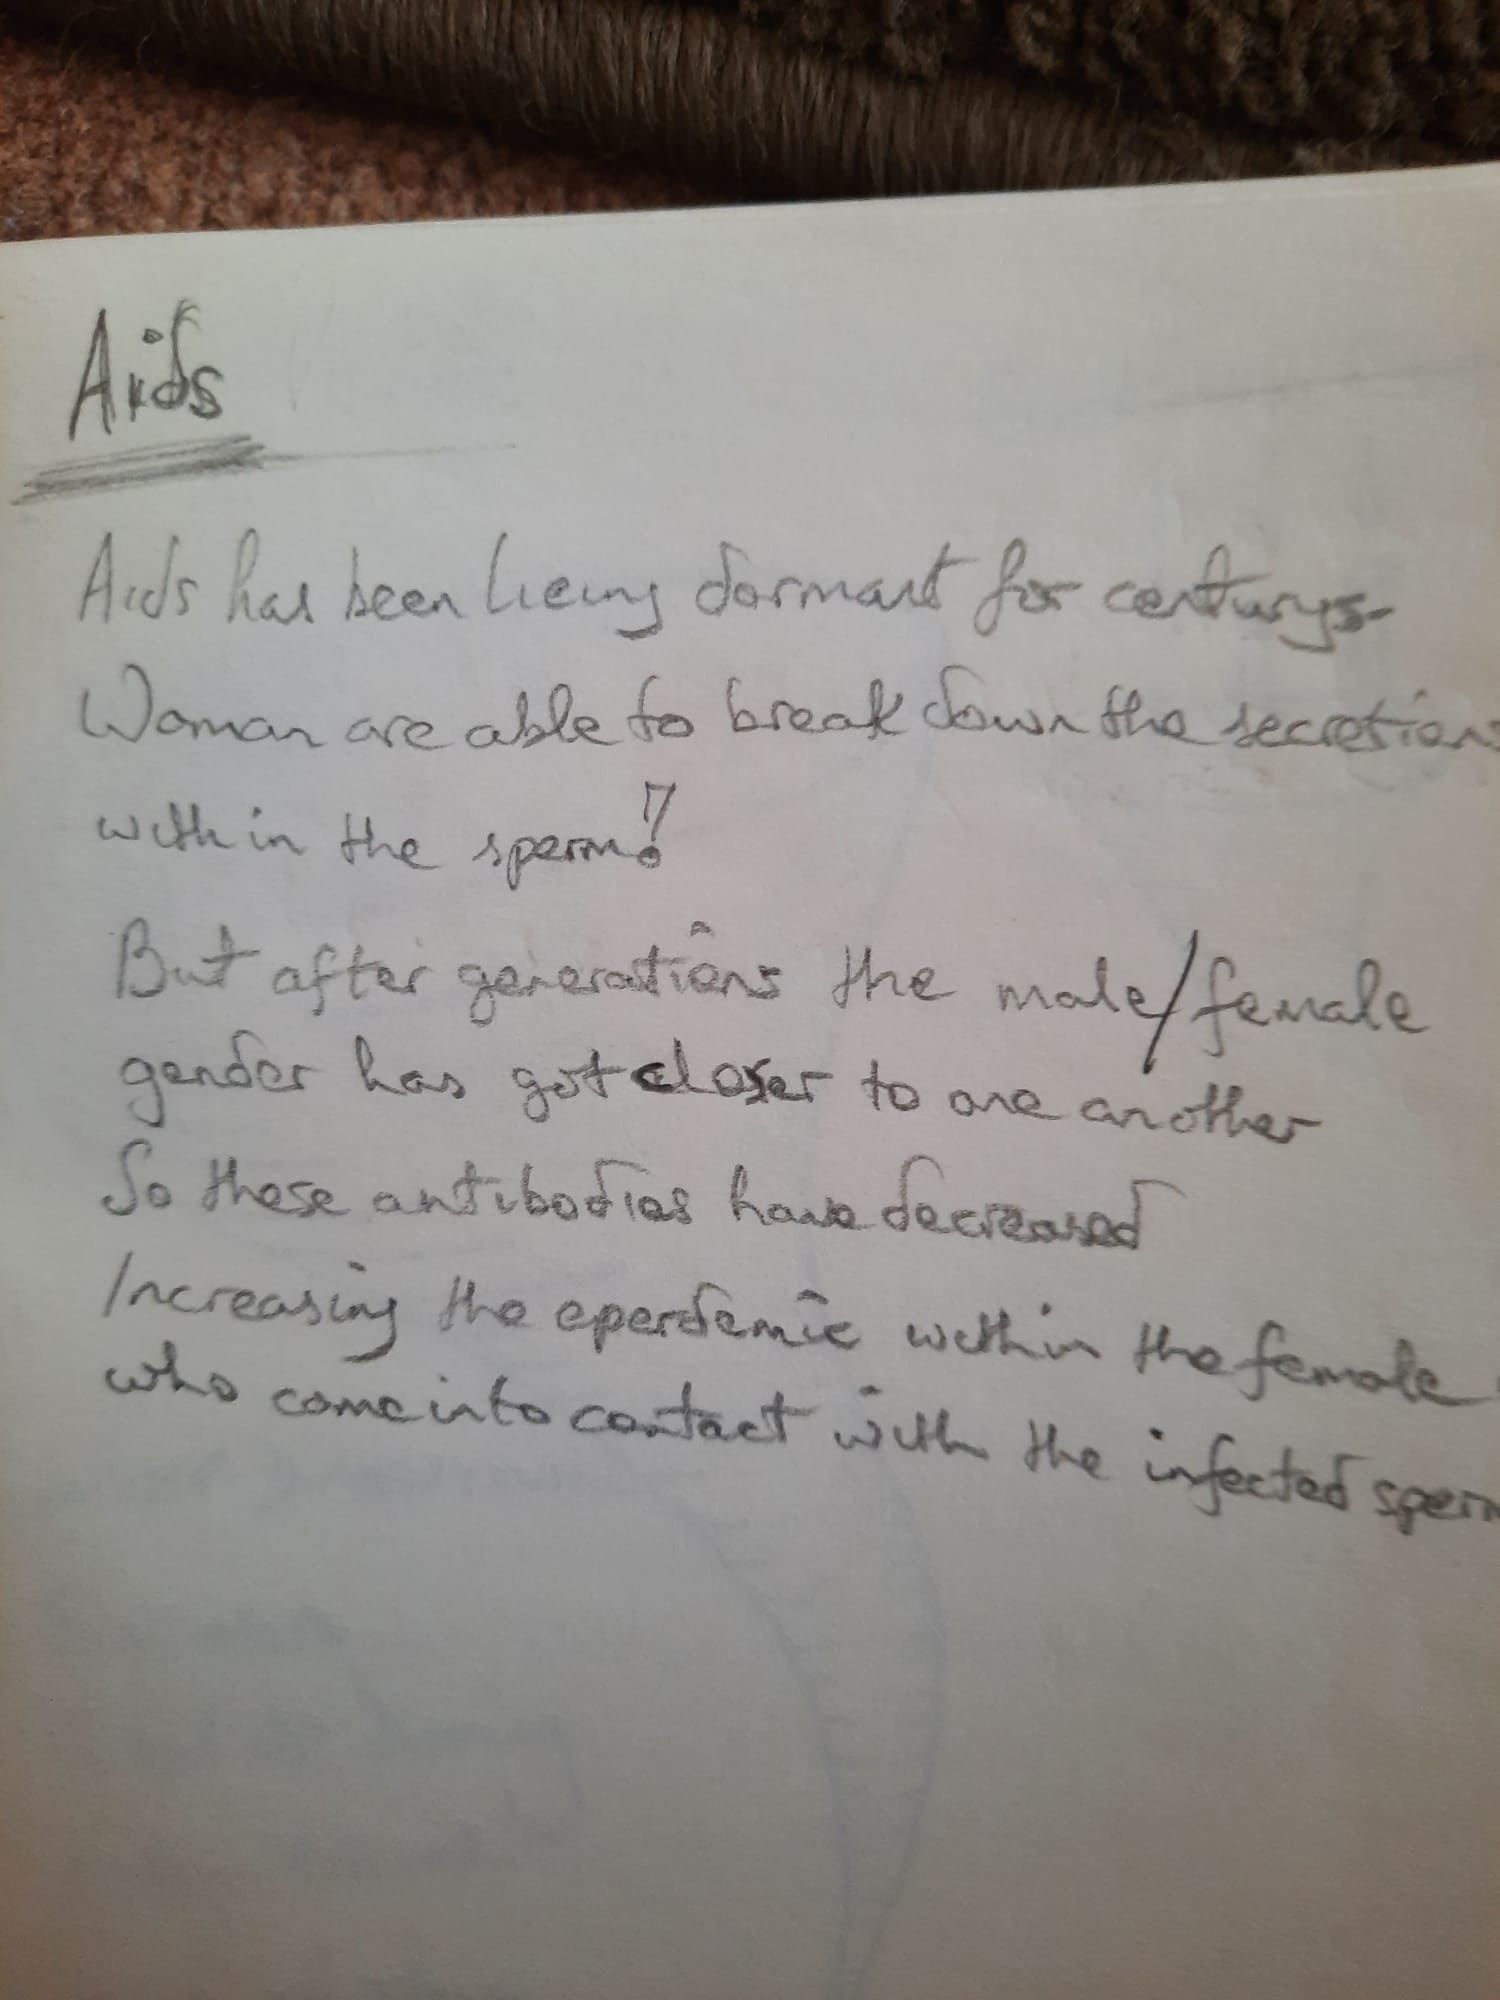 Aids
Aids has been lieing dormant for centurys-
Woman are able to break down the secretions
within the sperm!
But after generations the male/female
gender has got closer to one another
So these antibodies have decreased
Increasing the eperdemic within the female
who come into contact with the infected sperm